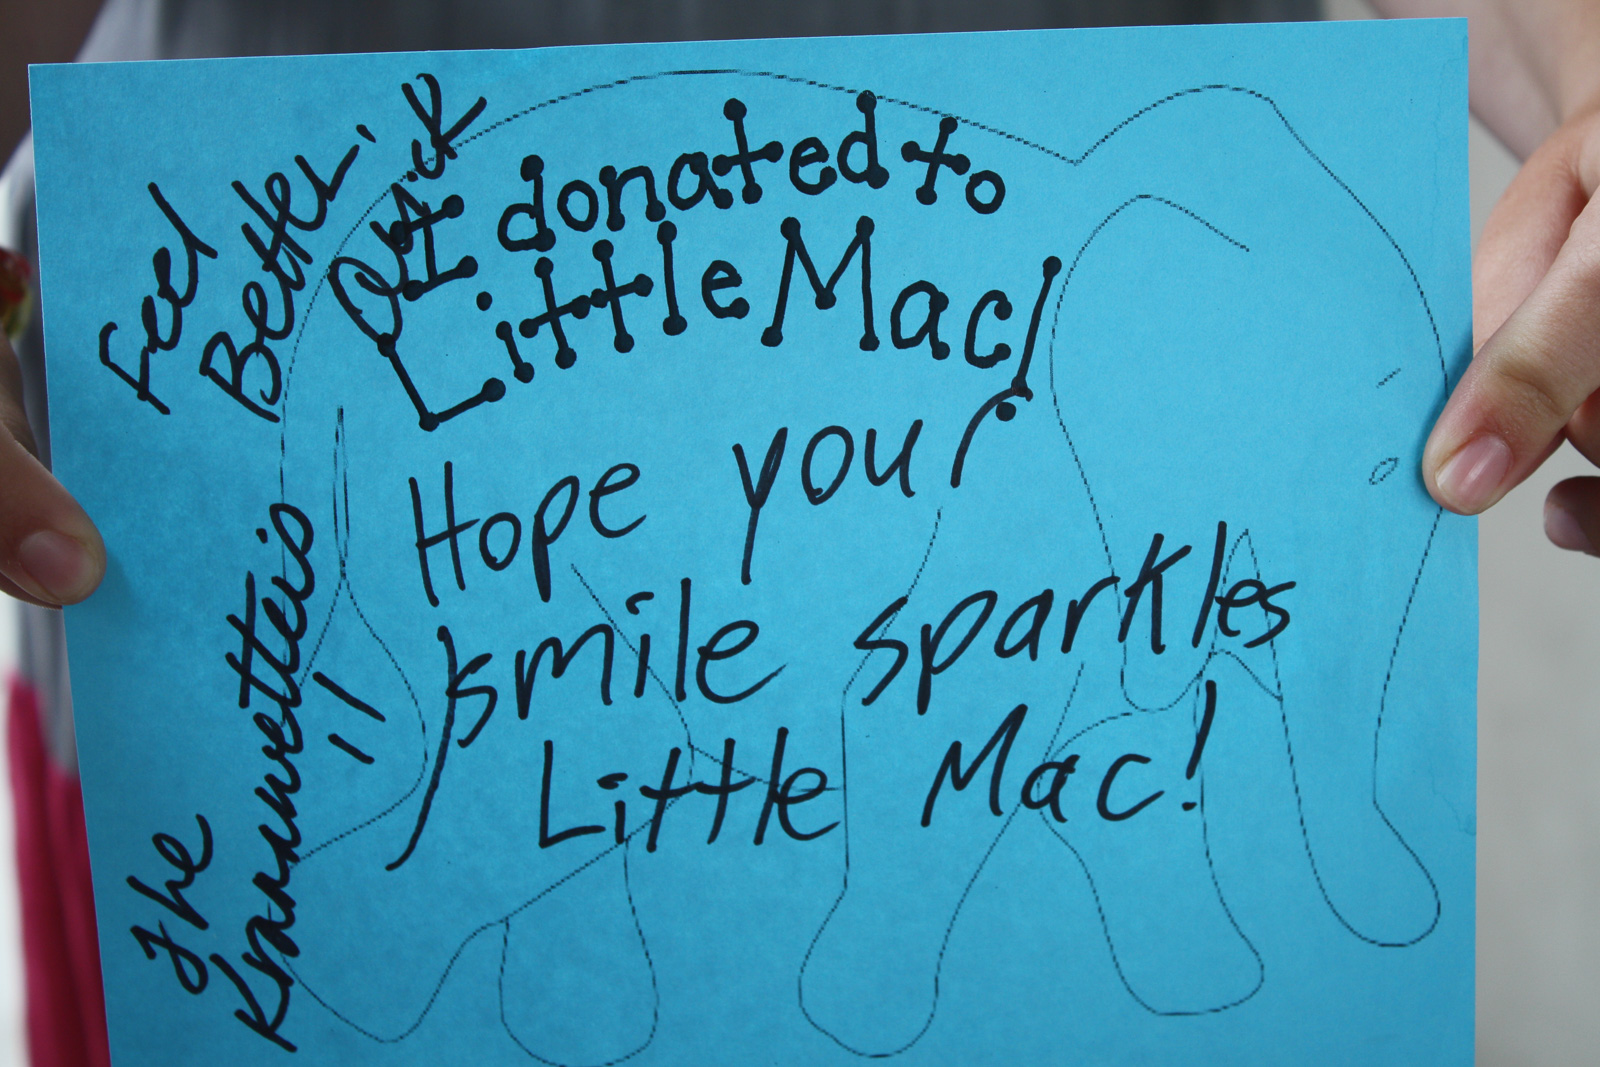 Feel
Better!
Quick
I donated to
Little Mac!
Hope your
smile sparkles
Little Mac!
The
Krannwetteis